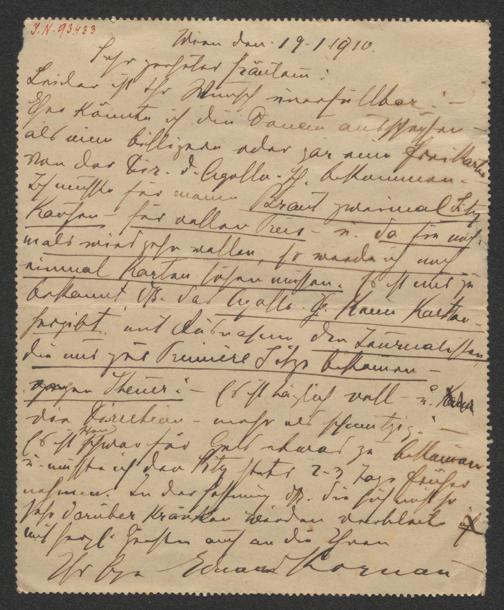 J.N. 93433
Wien den 19.1.1910.
Sehr geehrtes Fräulein!
Leider ist Ihr Wunsch unerfüllbar! –
Eher könnte ich die Donau
als einen billigeren oder gar eine Freikarte
von der Dir. d. Apollo-Th. bekommen. –
Ich musste für meine Braut zweimal Sitz
Kaufen – für vollen Preis – u. da sie noch
mals wird sehn wollen, so werde ich noch
einmal Karten lösen müssen. Es ist mir ja
bekannt dß. das Apollo Th. Keine Karten
hergibt mit Ausnahme den Journalisten
die nur zur Premiere Sitze bekommen –
Theuer! – Es ist täglich voll – u.
die Direction – mehr als schmutzig. –
Es ist schwer für Geld etwas zu bekommen
u. musste ich den Sitz stets 2–3 Tage früher
nehmen. In der Hoffnung dß. Sie sich nicht
sehr darüber Kränken werden verbleibe
mit herzl. Grüßen auch an die Ihren
Ihr Eduard